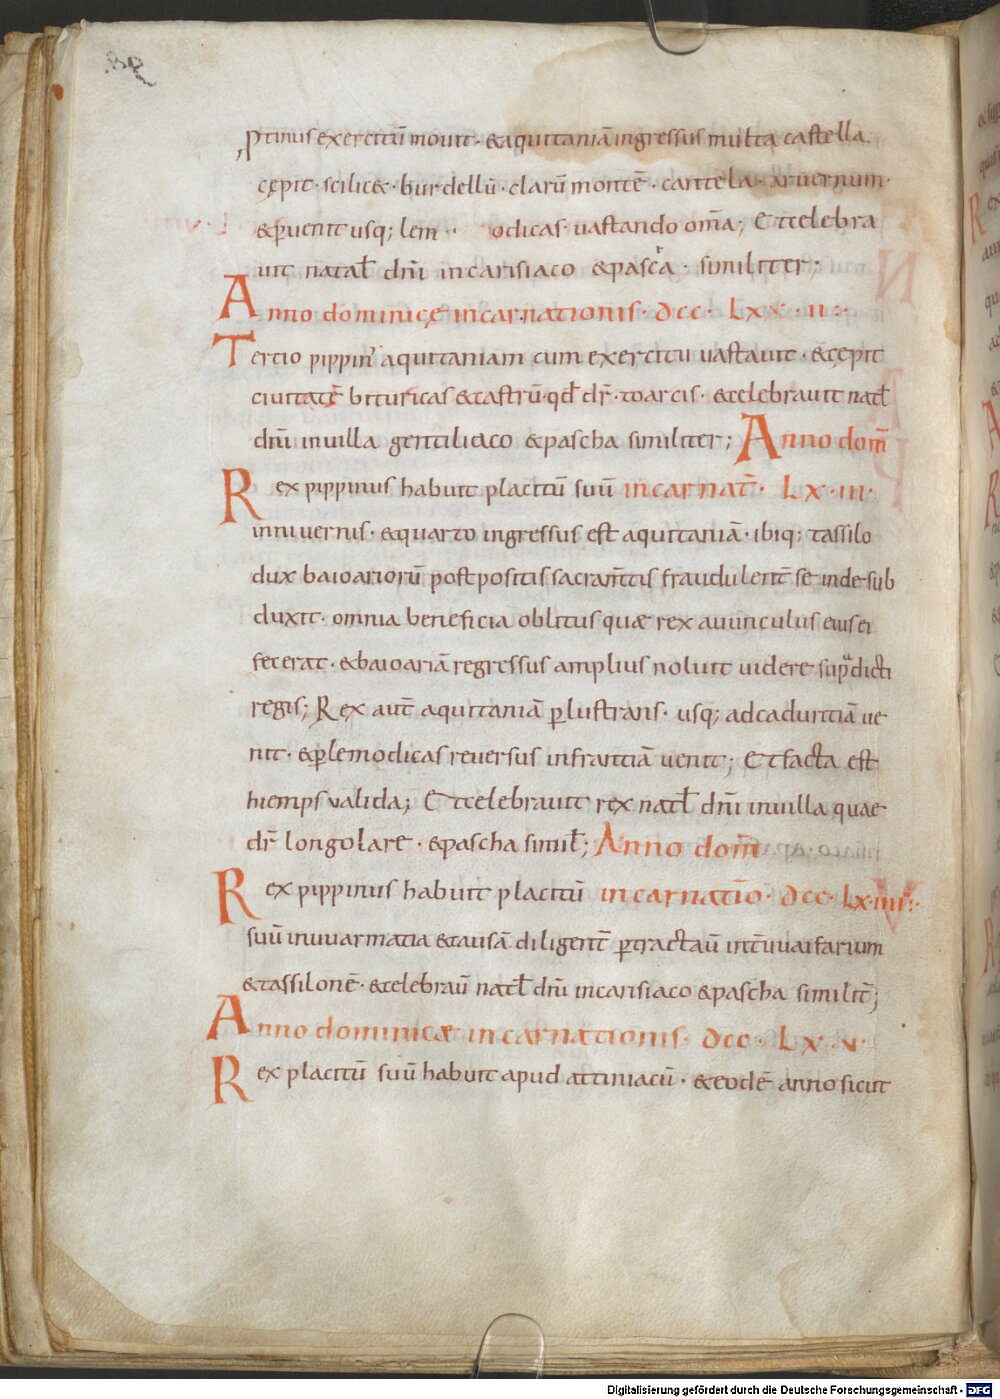 ptinus exercitū mouit · &aquitaniā ingressus multa castella
cępit · scilic& · burdellū · clarū montē · cantela · aruernum ·
&puenit usq; lem odicas · uastando om̄a ; Et celebra
uit natal̄ dn̄i incarisiaco &pasca · similiter ;
Anno dominicę incarnationis · dcc · Lxx · ii :·
Tercio pippin' aquitaniam cum exercitu uastauit · &cępit
ciuitatē bituricas &castrū · qd̄ dr̄ · toarcis · &celebrauit nat̄l
dn̄i inuilla gentiliaco &pascha similiter ; Anno dom̄
Rex pippinus habuit placitū suū incarnat̄ · Lx · iii ·
inniuernis · &quarto ingressus est aquitaniā · ibiq; tassilo
dux baioariorū postpositis sacram̄tis fraudulent̄ se inde sub
duxit · omnia beneficia oblitus quæ rex auunculus eius ei
fecerat · &baioariā regressus amplius noluit uidere sup̄dicti
regis ; Rex aut̄ aquitaniā p̱lustrans · usq; adcadurtiā ue
nit · &p̱lemodicas reuersus infrantiā uenit ; Et facta est
hiemps valida ; Et celebrauit rex nat̄l dn̄i inuilla quae
dr̄ longolare · &pascha simil̄ ; Anno dom̄
Rex pippinus habuit placitū incarnatiō · dcc · Lx · iiii :·
suū inuuarmatia &causā diligent̄ p̱tractaū int̄ uuaifarium
&tassilonē · &celebraū nat̄l dn̄i incarisiaco &pascha similit̄ ;
Anno dominicæ incarnationis · dcc · Lx · v ·
Rex placitū suū habuit apud attiniacū · &eodē anno sicut
Digitalisierung gefördert durch die Deutsche Forschungsgemeinschaft - DFG